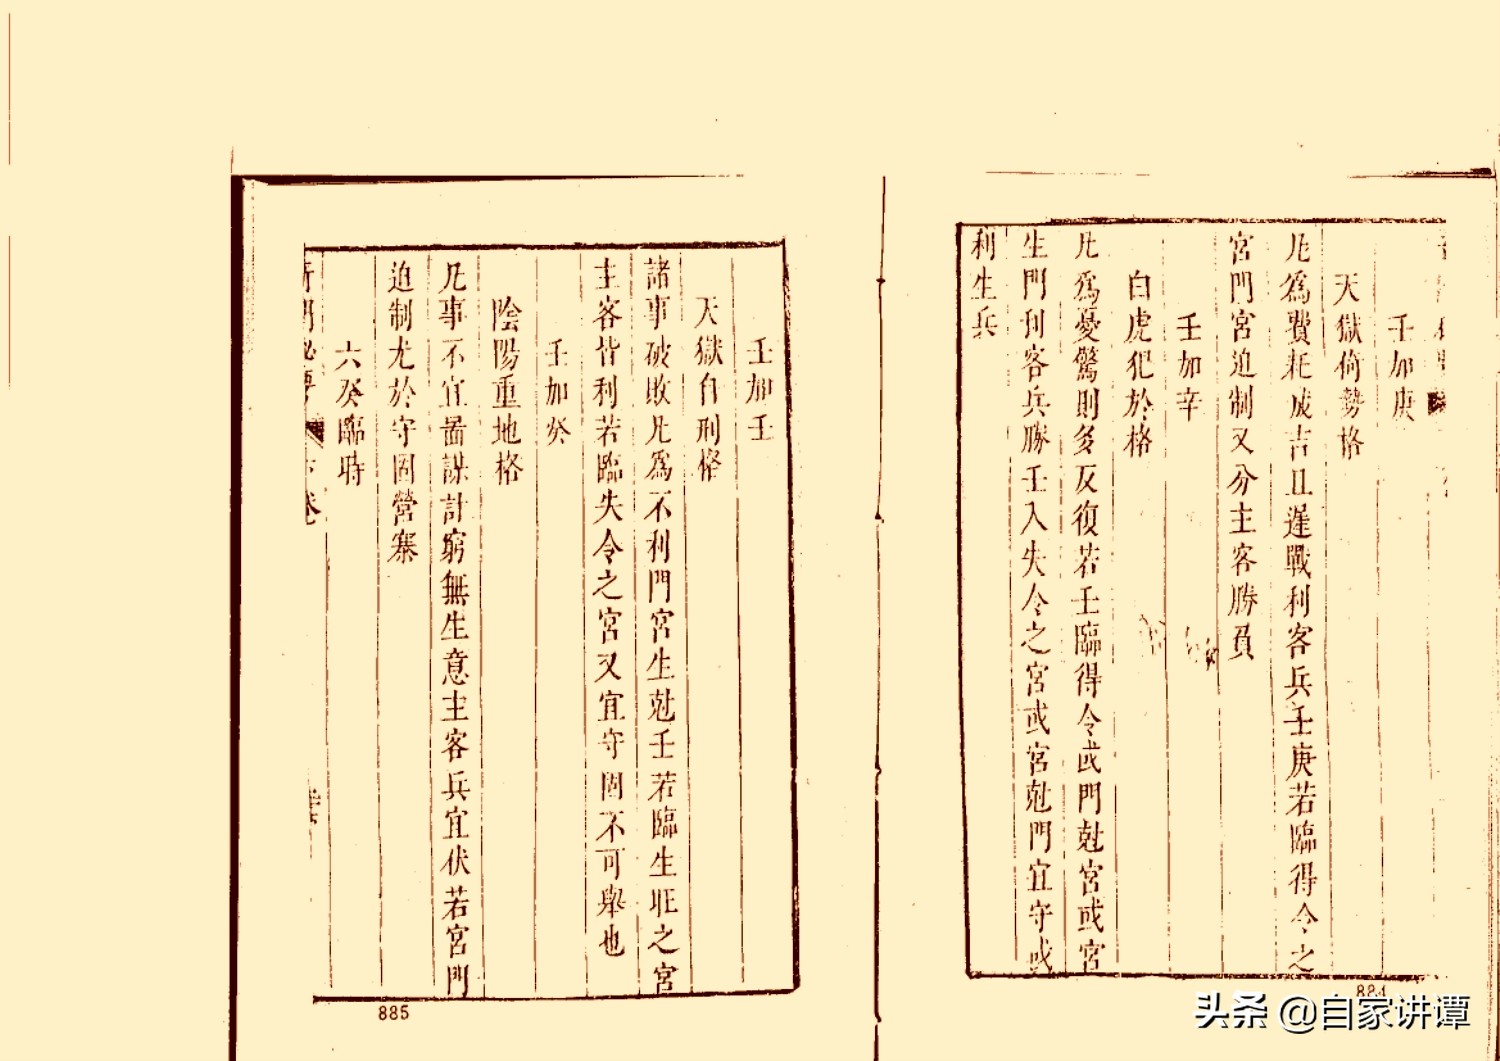 壬加庚
天獄倚勢格
凡爲費耗成吉且遲戰利客兵壬庚若臨得令之
宮門宮迫制又分主客勝負
壬加辛
白虎犯於格
凡爲憂驚則多反復若壬臨得令或門尅宮或宮
生門利客兵勝壬入失令之宮或宮尅門宜守或
利生兵
884
壬加壬
天獄自刑格
諸事破敗凡爲不利門宮生尅壬若臨生旺之宮
主客皆利若臨失令之宮又宜守固不可舉也
壬加癸
陰陽重地格
凡事不宜啚謀計窮無生意主客兵宜伏若宮門
迫制尤於守固營寨
六癸臨時
885
头条 @自家讲谭